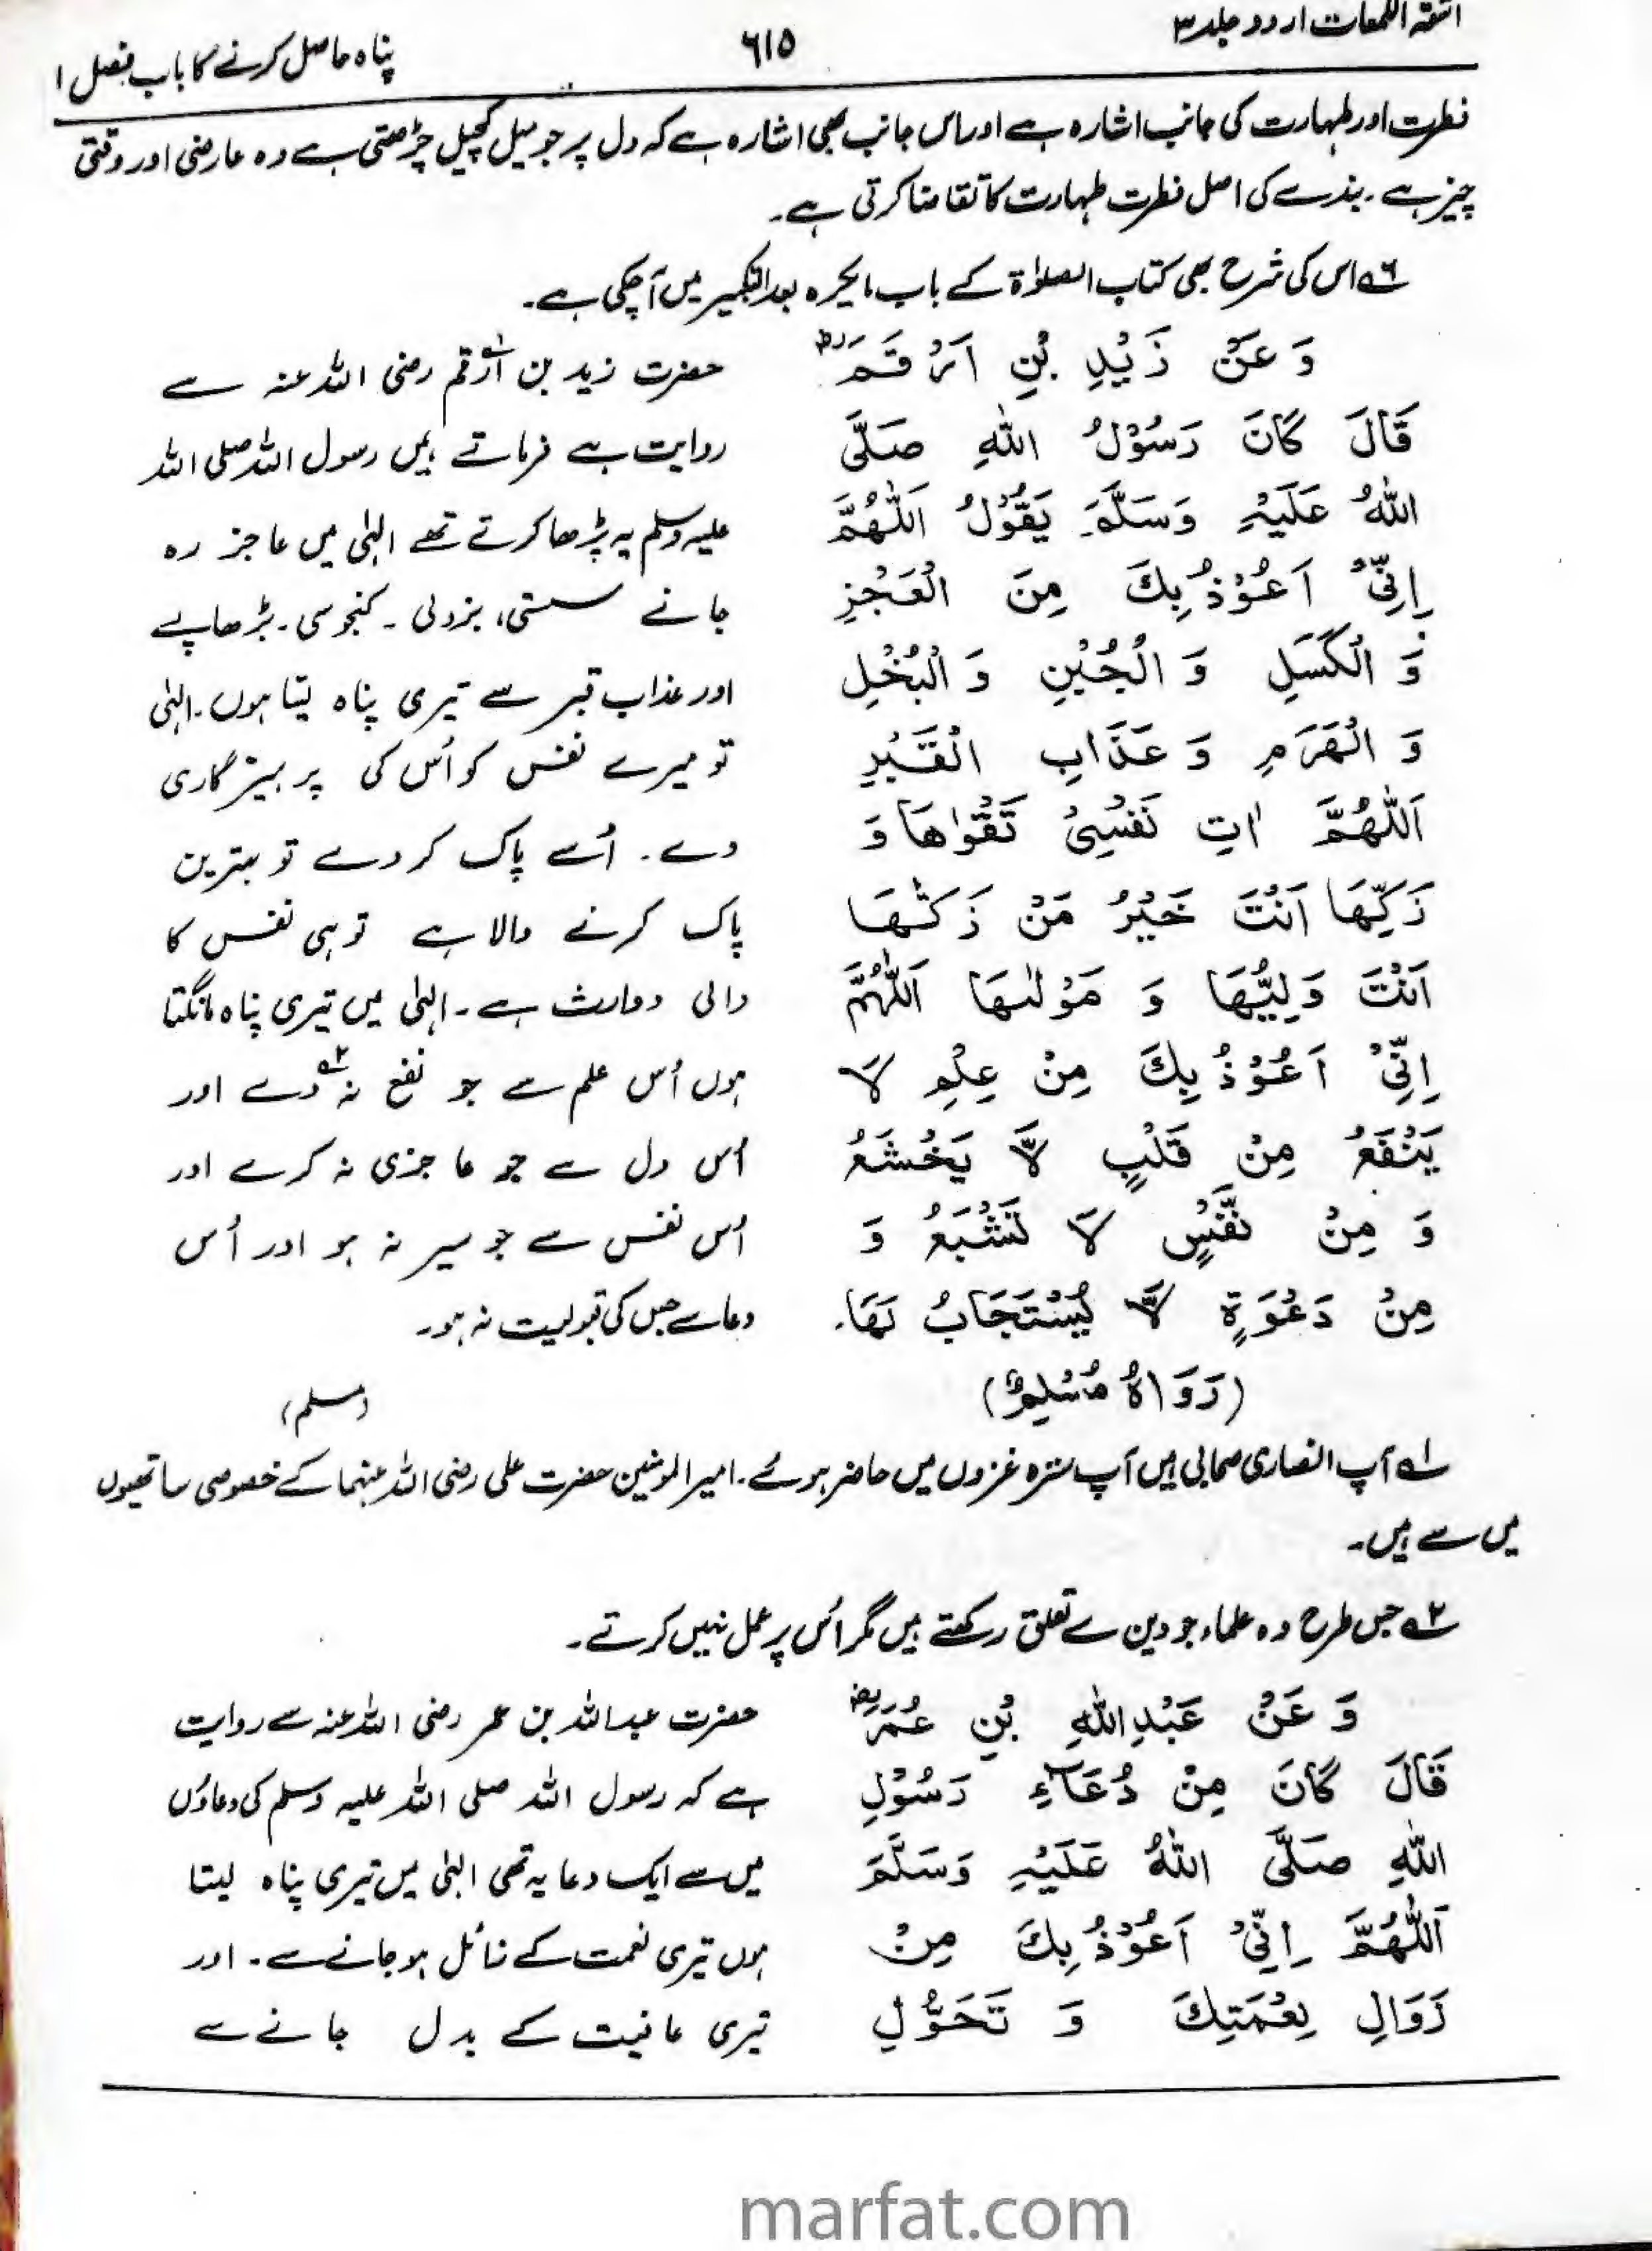 اشعۃ اللمعات اردو جلد ۳
٦١٥
پناہ حاصل کرنے کا باب فصل ۱
فطرت اور طہارت کی جانب اشارہ ہے اور اس جانب بھی اشارہ ہے کہ دل پر جو میل کچیل چڑھتی ہے وہ عارضی اور وقتی
چیز ہے۔ بندے کی اصل فطرت طہارت کا تقاضا کرتی ہے۔
۶ اس کی شرح بھی کتاب الصلوٰۃ کے باب بعد التکبیر میں آچکی ہے۔
وَ عَنْ زَیْدِ بْنِ اَرْقَمَ رض
قَالَ كَانَ رَسُوْلُ اللّٰهِ صَلَّى
اللّٰهُ عَلَیْهِ وَسَلَّمَ یَقُوْلُ اَللّٰهُمَّ
اِنِّیْ اَعُوْذُ بِكَ مِنَ الْعَجْزِ
وَ الْكَسَلِ وَ الْجُبْنِ وَ الْبُخْلِ
وَ الْهَرَمِ وَ عَذَابِ الْقَبْرِ
اَللّٰهُمَّ اٰتِ نَفْسِیْ تَقْوٰاهَا وَ
زَكِّهَا اَنْتَ خَیْرُ مَنْ زَكّٰىهَا
اَنْتَ وَلِیُّهَا وَ مَوْلٰىهَا اَللّٰهُمَّ
اِنِّیْ اَعُوْذُ بِكَ مِنْ عِلْمٍ لَا
یَنْفَعُ مِنْ قَلْبٍ لَّا یَخْشَعُ
وَ مِنْ نَّفْسٍ لَا تَشْبَعُ وَ
مِنْ دَعْوَةٍ لَّا یُسْتَجَابُ لَهَا۔
(رَوَاهُ مُسْلِمٌ)
حضرت زید بن ارقم۱ رضی اللہ عنہ سے
روایت ہے فرماتے ہیں رسول اللہ صلی اللہ
علیہ وسلم یہ پڑھا کرتے تھے الٰہی میں عاجز رہ
جانے سستی، بزدلی۔ کنجوسی۔ بڑھاپے
اور عذاب قبر سے تیری پناہ لیتا ہوں۔ الٰہی
تو میرے نفس کو اُس کی پرہیزگاری
دے۔ اُسے پاک کر دے تو بہترین
پاک کرنے والا ہے تو ہی نفس کا
والی و وارث ہے۔ الٰہی میں تیری پناہ مانگتا
ہوں اُس علم سے جو نفع نہ۲ دے اور
اُس دل سے جو عاجزی نہ کرے اور
اُس نفس سے جو سیر نہ ہو اور اُس
دعا سے جس کی قبولیت نہ ہو۔
(مسلم)
۱ آپ انصاری صحابی ہیں آپ سترہ غزوں میں حاضر ہوئے۔ امیر المومنین حضرت علی رضی اللہ عنہما کے خصوصی ساتھیوں
میں سے ہیں۔
۲ جس طرح وہ علماء جو دین سے تعلق رکھتے ہیں مگر اُس پر عمل نہیں کرتے۔
وَ عَنْ عَبْدِ اللّٰهِ بْنِ عُمَرَ رض
قَالَ كَانَ مِنْ دُعَآءِ رَسُوْلِ
اللّٰهِ صَلَّى اللّٰهُ عَلَیْهِ وَسَلَّمَ
اَللّٰهُمَّ اِنِّیْ اَعُوْذُ بِكَ مِنْ
زَوَالِ نِعْمَتِكَ وَ تَحَوُّلِ
حضرت عبداللہ بن عمر رضی اللہ عنہ سے روایت
ہے کہ رسول اللہ صلی اللہ علیہ وسلم کی دعاؤں
میں سے ایک دعا یہ تھی الٰہی میں تیری پناہ لیتا
ہوں تیری نعمت کے زائل ہو جانے سے۔ اور
تیری عافیت کے بدل جانے سے
marfat.com